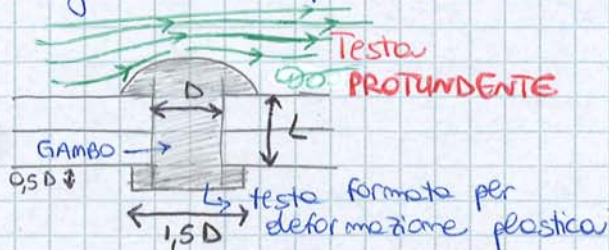 Testa
PROTUNDENTE
D
L
GAMBO
0,5D
1,5D
testa formata per
deformazione plastica